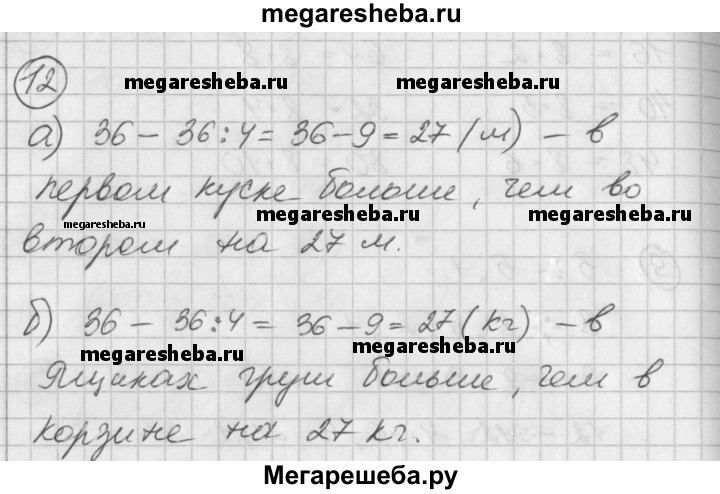 megaresheba.ru
12
megaresheba.ru megaresheba.ru
а) 36 - 36:4 = 36-9 = 27 (м) - в
первом куске больше, чем во
megaresheba.ru megaresheba.ru megaresheba.ru
втором на 27 м.
б) 36 - 36:4 = 36-9 = 27 (кг) - в
megaresheba.ru megaresheba.ru
Ящиках груш больше, чем в
корзине на 27 кг.
Мегарешеба.ру